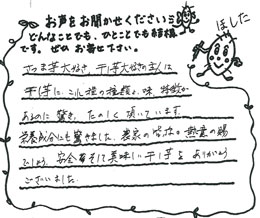 お声をお聞かせください
どんなことでも、ひとことでも結構
です。ぜひ お寄せ下さい。
ほした
さつま芋大好き、干し芋大好きの主人は
干し芋に これ程の種類、味、特徴が
あるのに驚き、たのしく頂いています。
栄養成分にも驚きました。農家の皆様の熱意の賜
でしょう。安全そして美味しい干し芋を ありがとう
ございました。